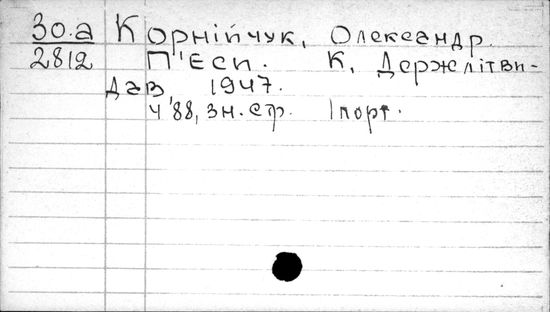 30.а Корнійчук, Олександр.
2812 П'єси. К, Держлітви-
дав, 1947.
4'88, 3 н. стр. 1 порт.